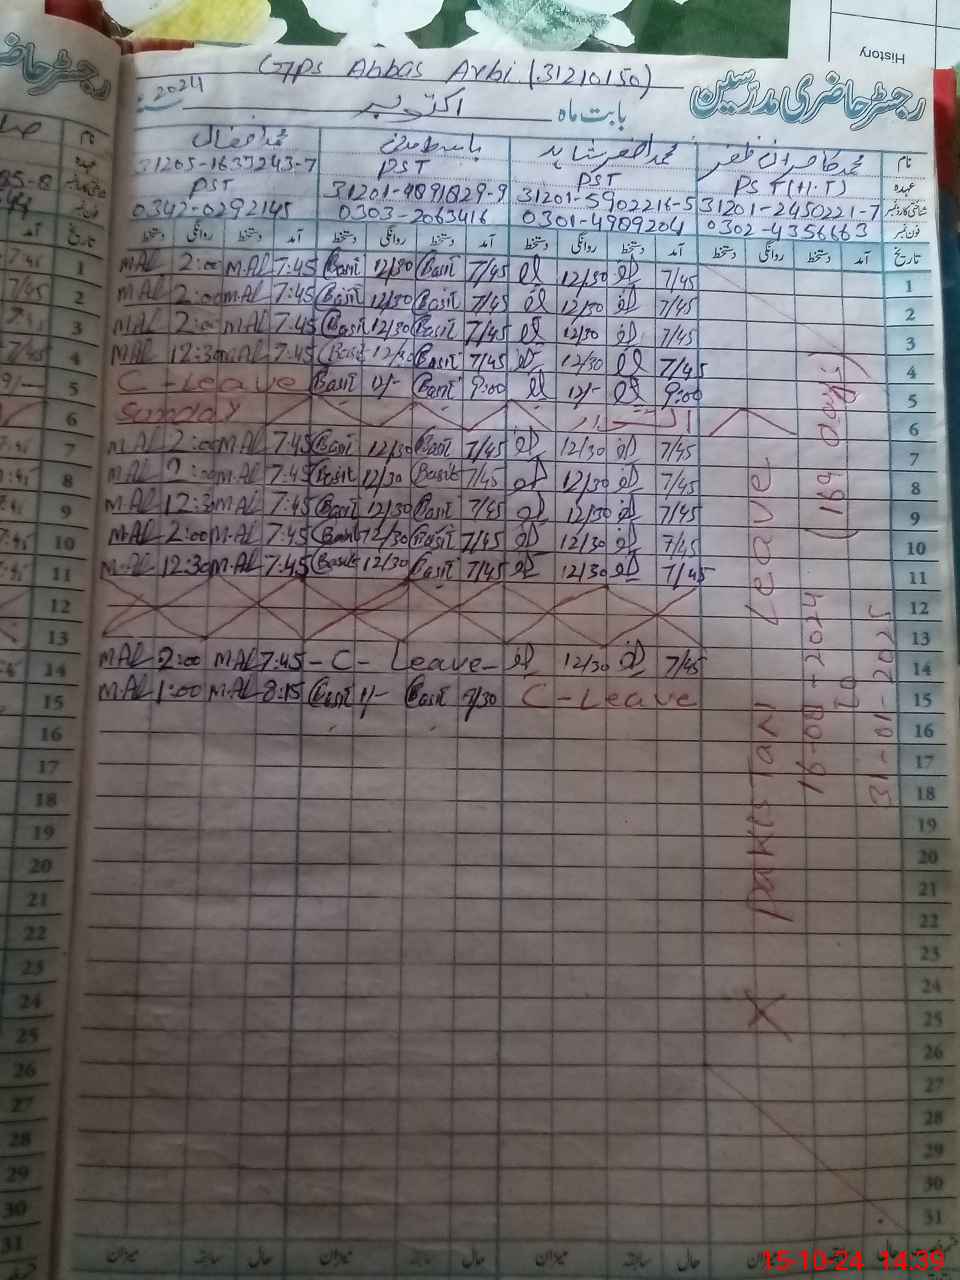 History
G/Ps Abbas Arbi (31210150)
رجسٹر حاضری مدرسین
بابت ماہ اکتوبر 2024
نام محمد کامران ظفر محمد اظفر شاہد باسط محمد افضال
عہدہ PST (H.T) PST PST PST
31201-2450221-7 31201-5902216-5 31201-4891829-9 31205-1633243-7
فون نمبر 0302-4356663 0301-4909204 0303-2063416 0342-0292145
تاریخ آمد دستخط روانگی دستخط آمد دستخط روانگی دستخط آمد دستخط روانگی دستخط آمد دستخط روانگی دستخط
MAL 2:00 MAL 7:45 Basit 12/30 Basit 7/45 12/30 7/45 1
MAL 2:00 MAL 7:45 Basit 12/30 Basit 7/45 12/30 7/45 2
MAL 2:00 MAL 7:45 Basit 12/30 Basit 7/45 12/30 7/45 3
MAL 12:30 MAL 7:45 Basit 12/30 Basit 7/45 12/30 7/45 4
C-Leave Basit 12/- Basit 9:00 12/- 9:00 5
Sunday اتوار 6
MAL 2:00 MAL 7:45 Basit 12/30 Basit 7/45 12/30 7/45 7
MAL 2:00 MAL 7:45 Basit 12/30 Basit 7/45 12/30 7/45 8
MAL 12:30 MAL 7:45 Basit 12/30 Basit 7/45 12/30 7/45 9
MAL 2:00 MAL 7:45 Basit 12/30 Basit 7/45 12/30 7/45 10
MAL 12:30 MAL 7:45 Basit 12/30 Basit 7/45 12/30 7/45 11
12
13
MAL 2:00 MAL 7:45 - C - Leave - 12/30 7/45 14
MAL 1:00 MAL 8:15 Basit 1/- Basit 7/30 C-Leave 15
16
17
18
19
20
21
22
23
24
25
26
27
28
29
30
31
X Pakistani Leave
16-08-2024 (169 Days)
To
31-01-2025
حال سابقہ میزان حال سابقہ میزان حال سابقہ میزان
15-10-24 14:39